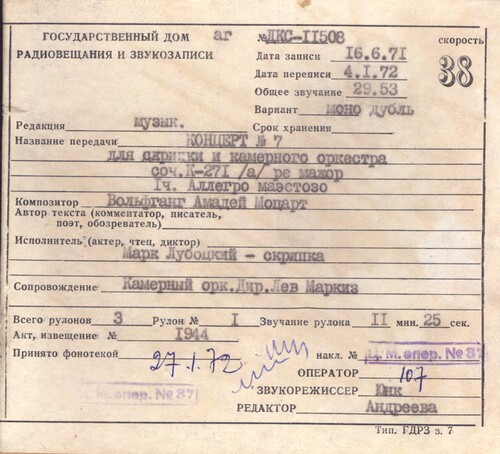 ГОСУДАРСТВЕННЫЙ ДОМ аг №ДКС-II508 скорость
РАДИОВЕЩАНИЯ И ЗВУКОЗАПИСИ Дата записи 16.6.71
Дата переписи 4.I.72 38
Общее звучание 29.53
Вариант моно дубль
Редакция музык. Срок хранения
Название передачи КОНЦЕРТ № 7
для скрипки и камерного оркестра
соч.К-27I /а/ ре мажор
Iч. Аллегро маэстозо
Композитор Вольфганг Амадей Моцарт
Автор текста (комментатор, писатель,
поэт, обозреватель)
Исполнитель (актер, чтец, диктор)
Марк Лубоцкий - скрипка
Сопровождение Камерный орк.Дир.Лев Маркиз
Всего рулонов 3 Рулон № I Звучание рулона II мин. 25 сек.
Акт, извещение № I944
Принято фонотекой 27.1.72 накл. № Ц. М. опер. № 37
ОПЕРАТОР 107
М. опер. № 37 ЗВУКОРЕЖИССЕР Юнк
РЕДАКТОР Андреева
Тип. ГДРЗ з. 7